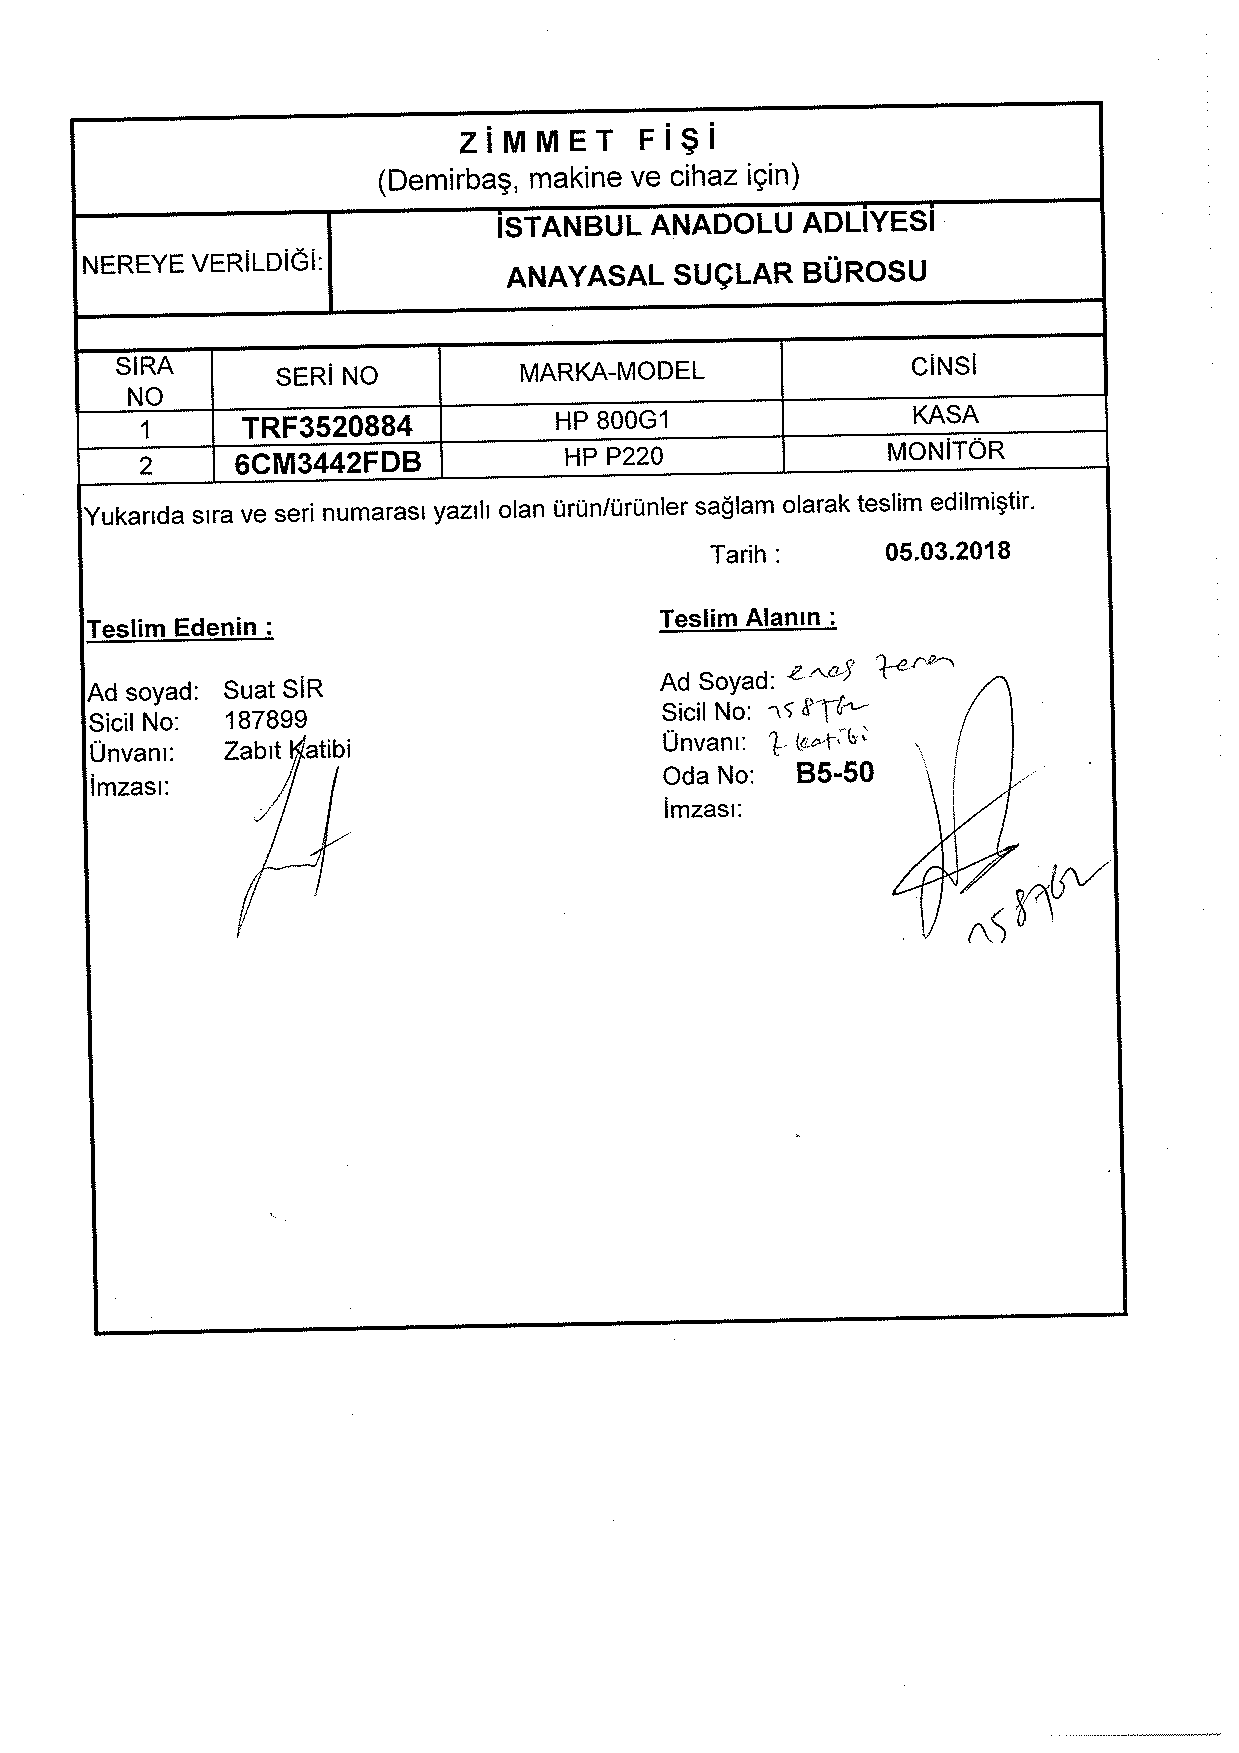 ZİMMET FİŞİ
(Demirbaş, makine ve cihaz için)
NEREYE VERİLDİĞİ:
İSTANBUL ANADOLU ADLİYESİ
ANAYASAL SUÇLAR BÜROSU
SIRA NO SERİ NO MARKA-MODEL CİNSİ
1 TRF3520884 HP 800G1 KASA
2 6CM3442FDB HP P220 MONİTÖR
Yukarıda sıra ve seri numarası yazılı olan ürün/ürünler sağlam olarak teslim edilmiştir.
Tarih : 05.03.2018
Teslim Edenin :
Ad soyad: Suat SİR
Sicil No: 187899
Ünvanı: Zabıt Katibi
İmzası:
Teslim Alanın :
Ad Soyad: enes
Sicil No: 158762
Ünvanı: Z. katibi
Oda No: B5-50
İmzası:
158762